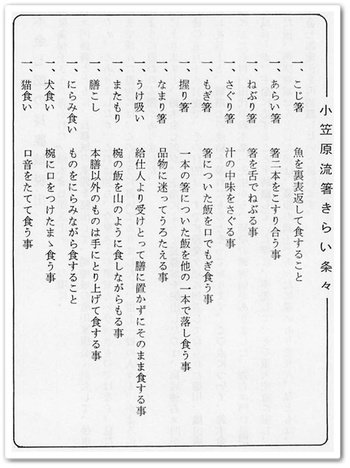 小笠原流箸きらい条々
一、こじ箸　魚を裏表返して食すること
一、あらい箸　箸二本をこすり合う事
一、ねぶり箸　箸を舌でねぶる事
一、さぐり箸　汁の中味をさぐる事
一、もぎ箸　箸についた飯を口でもぎ食う事
一、握り箸　一本の箸についた飯を他の一本で落し食う事
一、なまり箸　品物に迷ってうろたえる事
一、うけ吸い　給仕人より受けとって膳に置かずにそのまま食する事
一、またもり　椀の飯を山のように食しながらもる事
一、膳こし　本膳以外のものは手にとり上げて食する事
一、にらみ食い　ものをにらみながら食すること
一、犬食い　椀に口をつけたまゝ食う事
一、猫食い　口音をたてて食う事